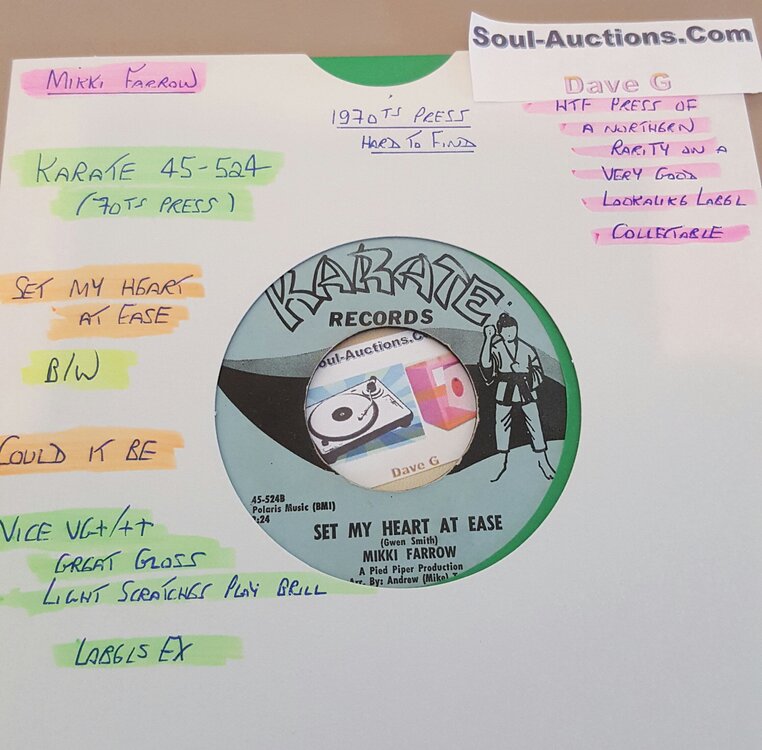 Soul-Auctions.Com
Dave G
MIKKI FARROW
1970TS PRESS
HARD TO FIND
HTF PRESS OF
A NORTHERN
RARITY ON A
VERY GOOD
LOOKALIKE LABEL
COLLECTABLE
KARATE 45-524
(70TS PRESS)
SET MY HEART
AT EASE
B/W
COULD IT BE
NICE VG+/++
GREAT GLOSS
LIGHT SCRATCHES PLAY BRILL
LABELS EX
KARATE
RECORDS
oul-Auctions.C
Dave G
45-524B
Polaris Music (BMI)
:24
SET MY HEART AT EASE
(Gwen Smith)
MIKKI FARROW
A Pied Piper Production
Arr. By: Andrew (Mike)